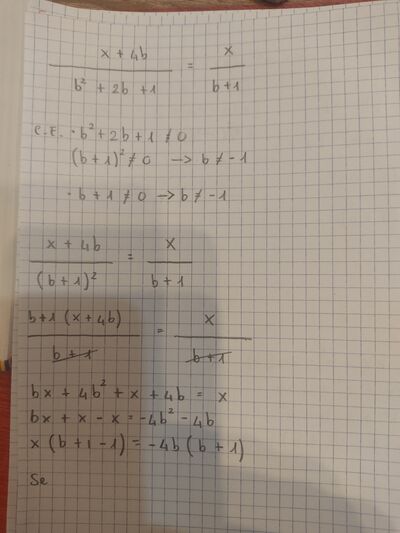 x + 4b / b² + 2b + 1 = x / b+1
C.E. · b² + 2b + 1 ≠ 0
(b + 1)² ≠ 0 —> b ≠ -1
· b + 1 ≠ 0 —> b ≠ -1
x + 4b / (b + 1)² = x / b + 1
b+1 (x + 4b) / b + 1 = x / b + 1
bx + 4b² + x + 4b = x
bx + x - x = -4b² - 4b
x (b + 1 - 1) = -4b (b + 1)
Se